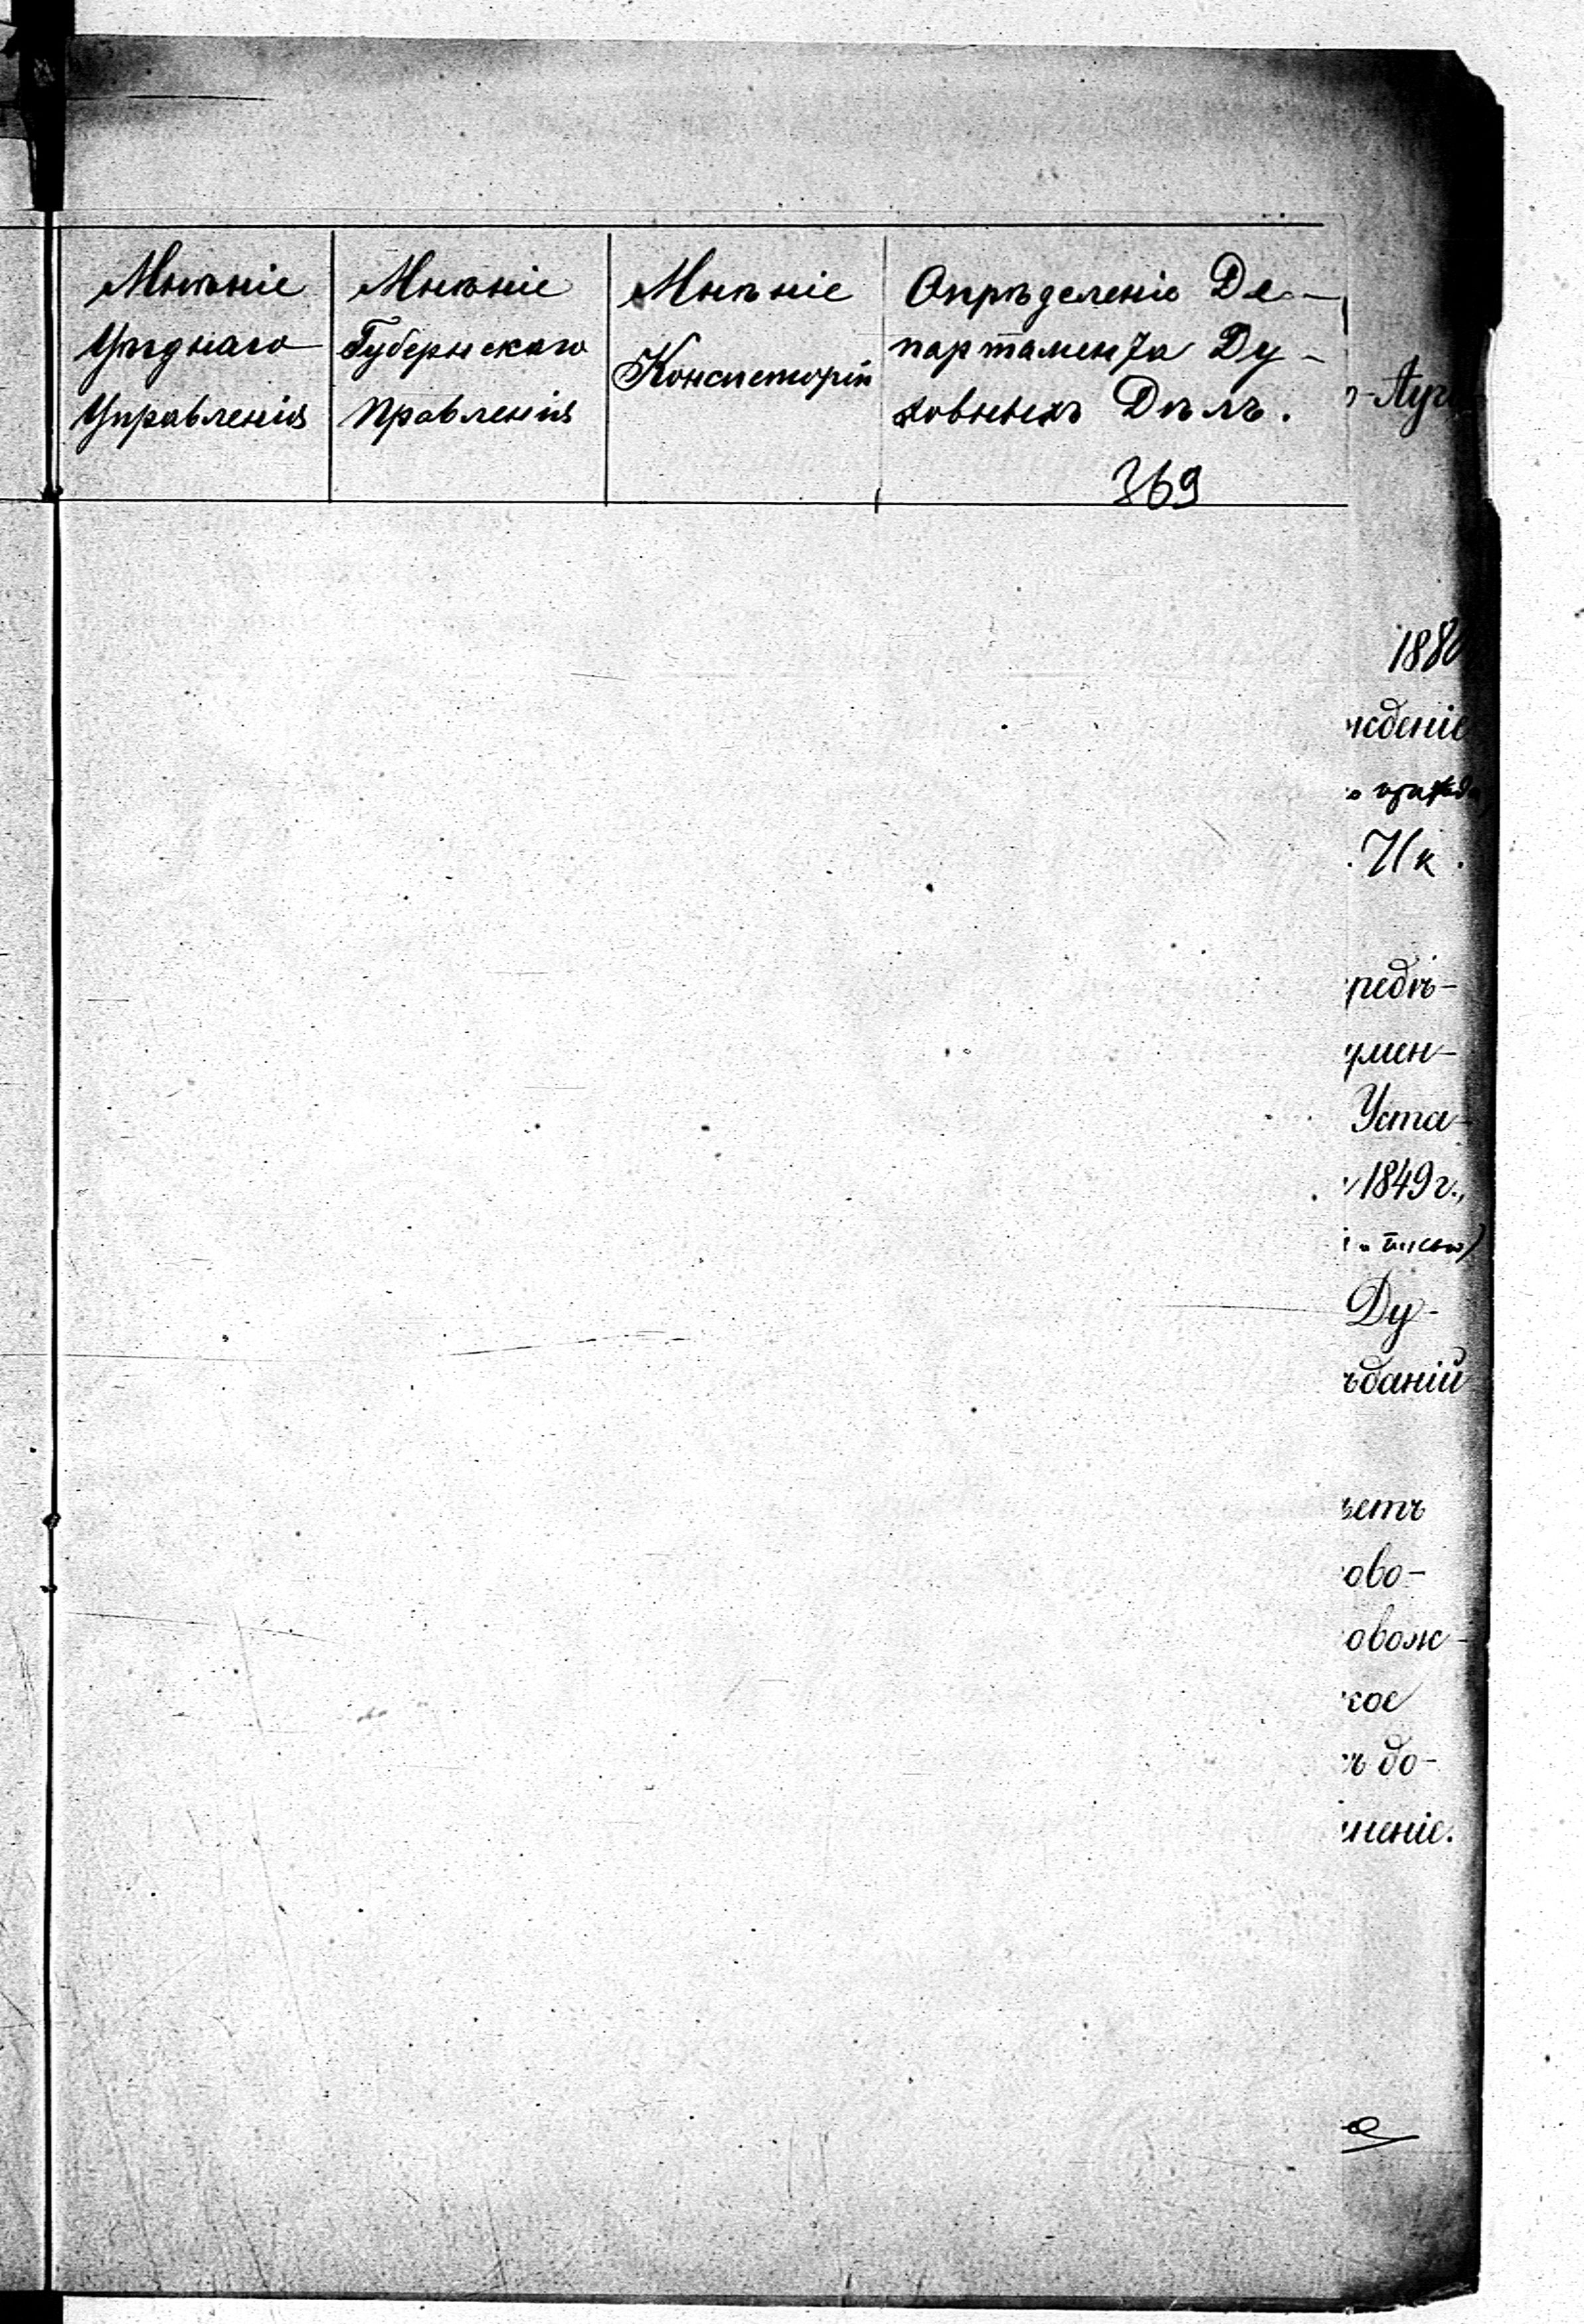 Мнѣніе
Уѣзднаго
Управленія
Мнѣніе
Губернскаго
Правленія
Мнѣніе
Консисторіи
Опрѣделеніе Де-
партамента Ду-
ховныхъ Дѣлъ.
369
188
ждение
. Ик.
редѣ-
умен-
Уста-
1849 г.,
Ду-
ѣданій
ѣетъ
ово-
овож-
кое
ъ до-
неніе.